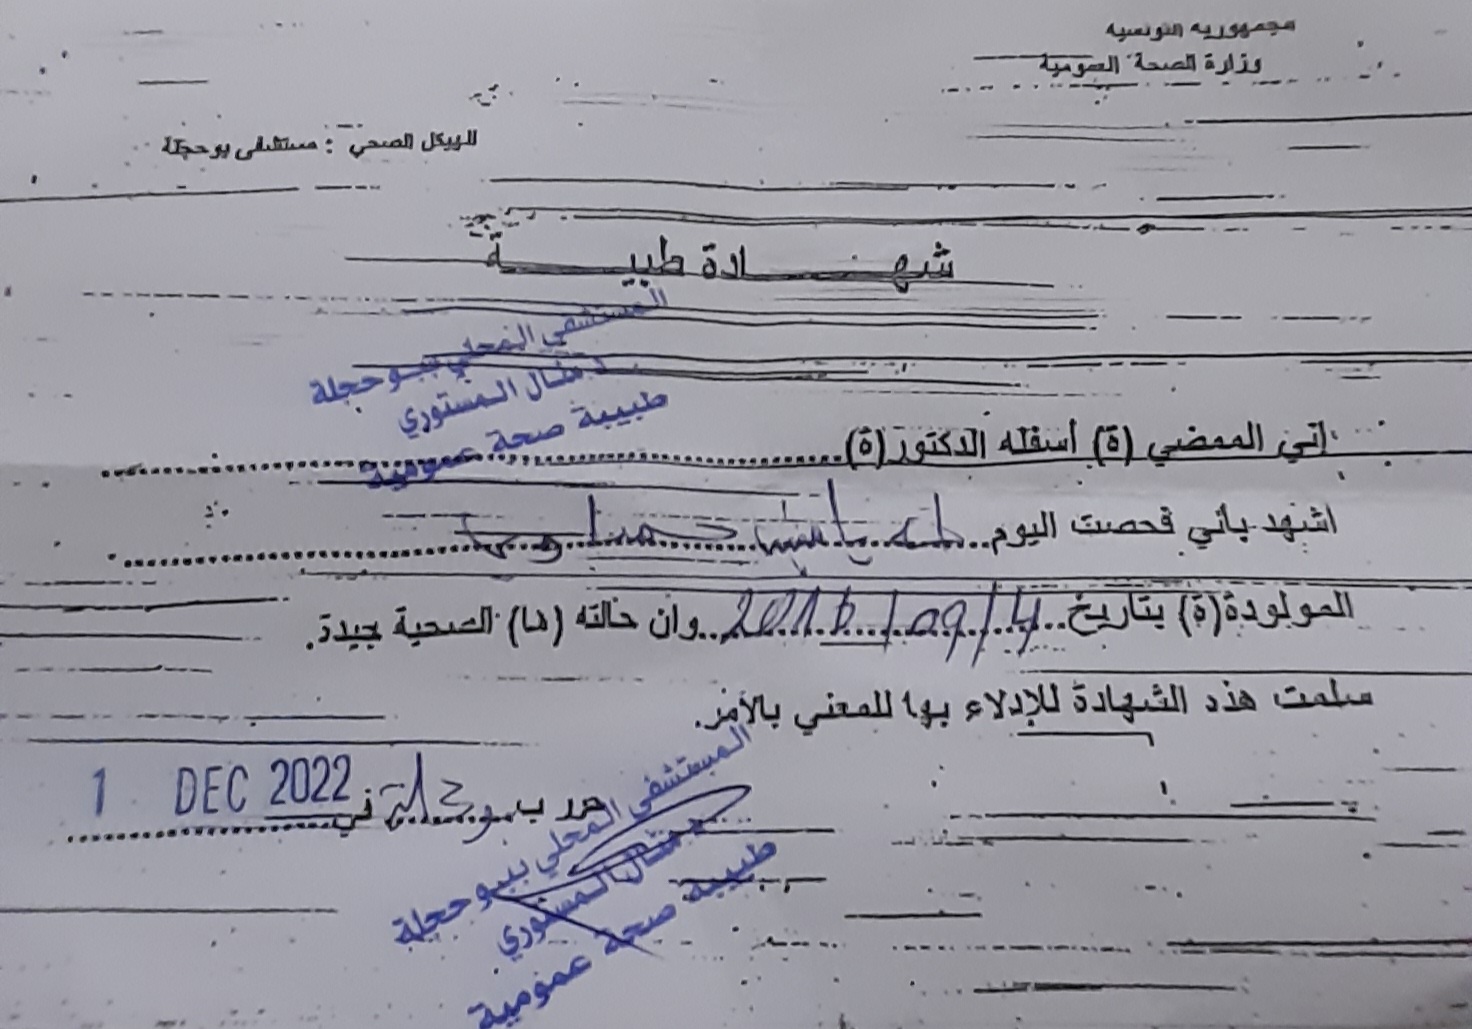 الجمهورية التونسية
وزارة الصحة العمومية
الهيكل الصحي : مستشفى بوحجلة
شهـــــادة طبيـــــة
المستشفى المحلي ببوحجلة
د. منال المستوري
طبيبة صحة عمومية
إني الممضي (ة) أسفله الدكتور(ة)
اشهد بأني فحصت اليوم
المولودة(ة) بتاريخ 2016/09/14 وان حالته (ها) الصحية جيدة.
سلمت هذه الشهادة للإدلاء بها للمعني بالأمر.
حرر ب بوحجلة في 1 DEC 2022
المستشفى المحلي ببوحجلة
د. منال المستوري
طبيبة صحة عمومية